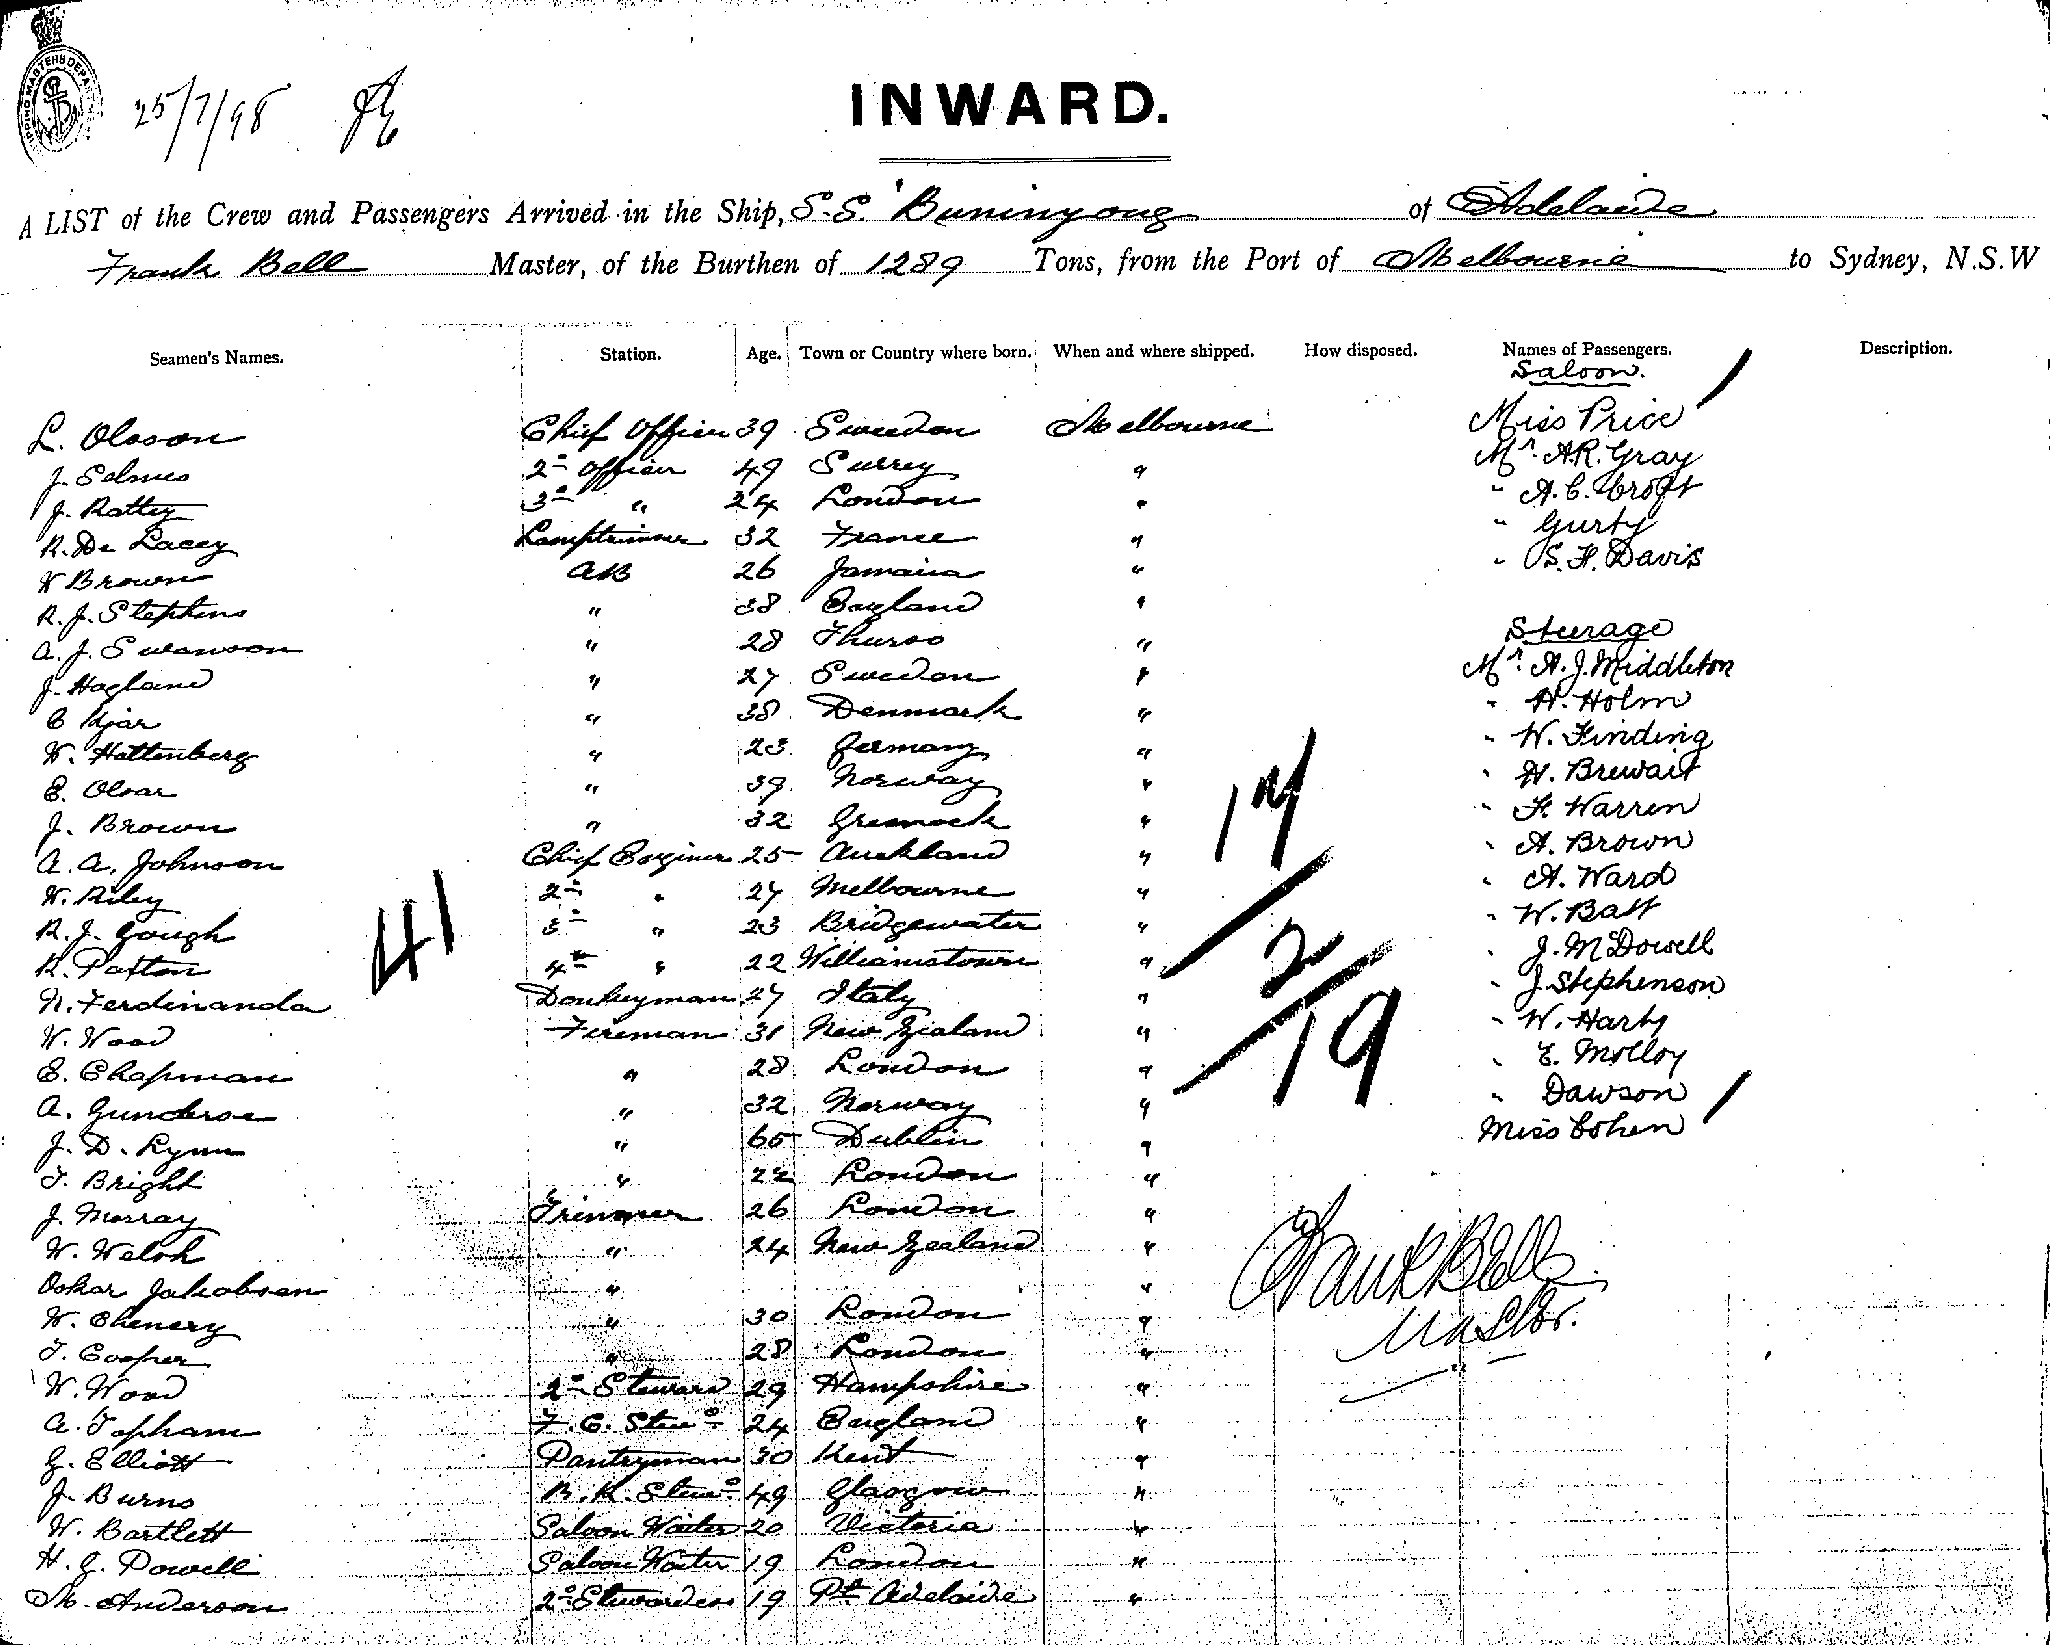 25/7/98
INWARD.
A LIST of the Crew and Passengers Arrived in the Ship, S.S. "Buninyong of Adelaide
Frank Bell Master, of the Burthen of 1289 Tons, from the Port of Melbourne to Sydney, N.S.W
Seamen's Names. Station. Age. Town or Country where born. When and where shipped. How disposed. Names of Passengers. Description.
Saloon.
L. Olsson Chief Officer 39 Sweedon Melbourne Miss Price
J. Selmes 2nd Officer 49 Surrey " Mr. A.R. Gray
J. Rattey 3d " 24 London " " A.C. Croft
R. De Lacey Lamptrimmer 32 France " " Gurty
W Brown AB 26 Jamaica " " S.F. Davis
R.J. Stephens " 38 England "
A.J. Swanson " 28 Thurso " Steerage
J. Hagland " 27 Sweedon " Mr. A.J. Middleton
C Kjar " 38 Denmark " " H. Holm
W. Hattenberg " 23 Germany " " W. Finding
E. Olsar " 39 Norway " " H. Brewait
J. Brown " 32 Greenock " " F. Warren
A.A. Johnson Chief Enginer 25 Auckland " " A. Brown
W. Riley 2nd " 27 Melbourne " " A. Ward
R.J. Gough 3d " 23 Bridgewater " " W. Batt
R. Paxton 4th " 22 Williamstown " " J. McDowell
N. Ferdinanda Donkeyman 27 Italy " " J. Stephenson
W. Wood Fireman 31 New Zealand " " W. Harty
E. Chapman " 28 London " " E. Molloy
A. Gunderse " 32 Norway " " Dawson
J.D. Lynn " 65 Dublin " Miss Cohen
T. Bright " 22 London "
J. Morray Trimmer 26 London "
W. Welsh " 24 New Zealand "
Oskar Jakobsen " "
W. Chenery " 30 London "
T. Cooper " 28 London "
W. Wood 2nd Steward 29 Hampshire "
A. Topham F.C. Stewd 24 England "
G. Elliott Pantryman 30 Kent "
J. Burns B.R. Stewd 49 Glasgow "
W. Bartlett Saloon Waiter 20 Victoria "
H.G. Powell Saloon Waiter 19 London "
M. Anderson 2nd Stewardess 19 Pt Adelaide "
41
17
2
19
Frank Bell
Master.